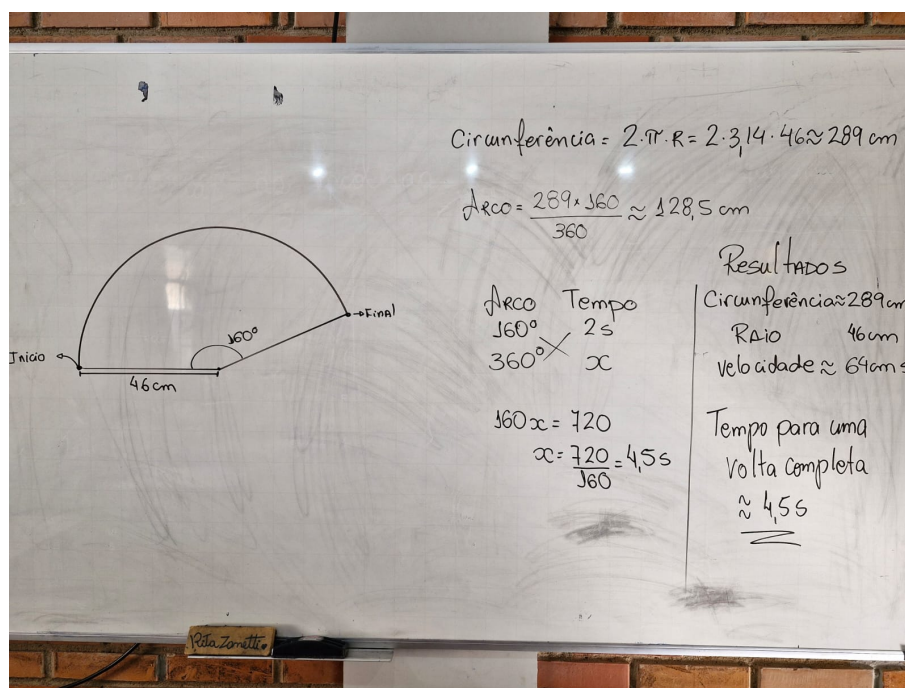 Circunferência = 2·π·R = 2·3,14·46 ≈ 289 cm
Arco = 289 × 160 / 360 ≈ 128,5 cm
Arco Tempo
160° 2s
360° x
160x = 720
x = 720 / 160 = 4,5 s
Resultados
Circunferência ≈ 289 cm
Raio 46 cm
velocidade ≈ 64 cm s
Tempo para uma
volta completa
≈ 4,5 s
Início
160°
Final
46 cm
Rita Zanetti